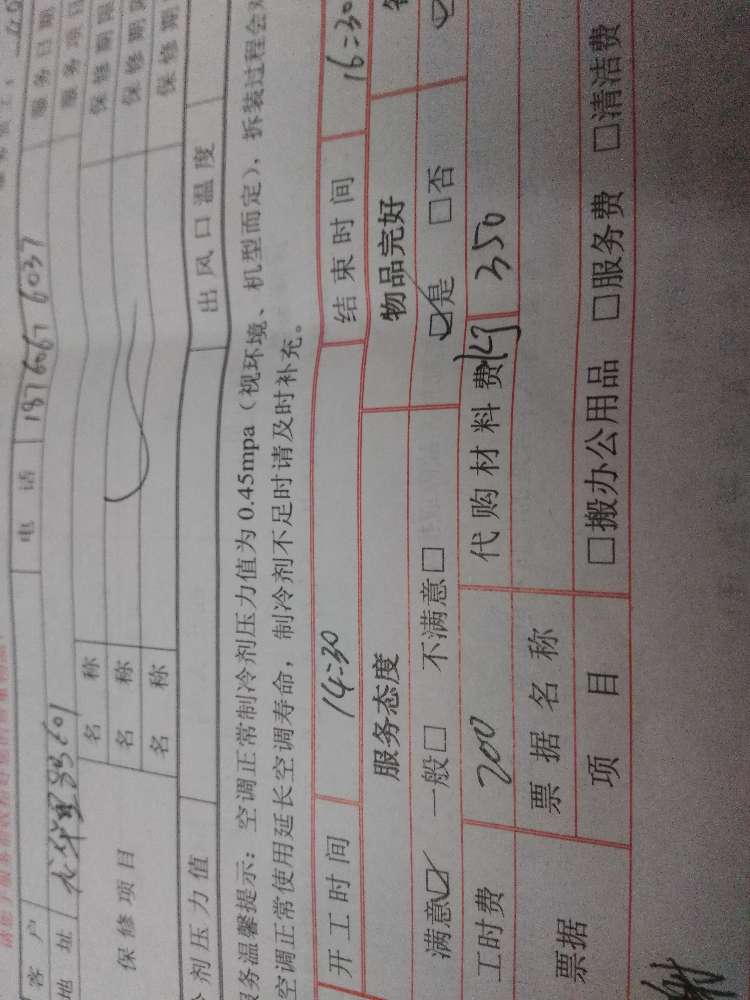 客 户 电 话 187 6067 6037 服 务 日 期
地 址 601 服 务 项 目
保 修 项 目
名 称 保 修 期 限
名 称 保 修 期 限
名 称 保 修 期
剂 压 力 值 出 风 口 温 度
服务温馨提示：空调正常制冷剂压力值为 0.45mpa（视环境、机型而定），拆装过程会
空调正常使用延长空调寿命，制冷剂不足时请及时补充。
开 工 时 间 14:30 结 束 时 间 16:30
服务态度 物品完好
满意☑ 一般□ 不满意□ ☑是 □否
工时费 200 代 购 材 料 费 350
票据 票 据 名 称
项 目 □搬办公用品 □服务费 □清洁费